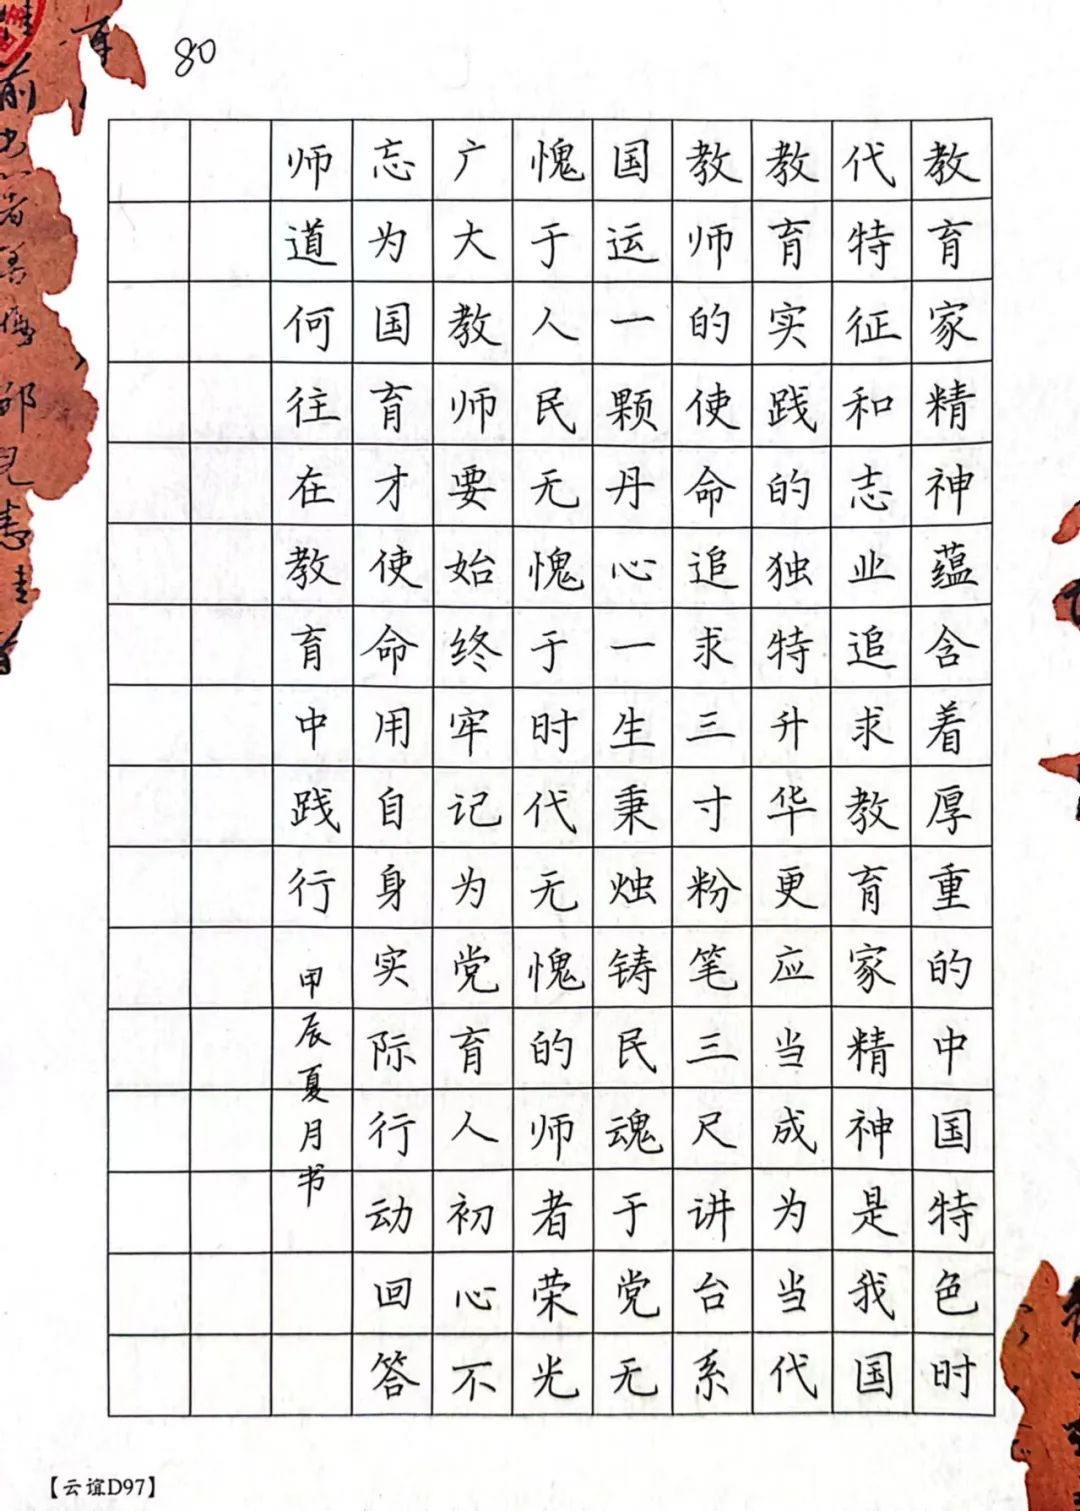 80
教育家精神蕴含着厚重的中国特色时
代特征和志业追求教育家精神是我国
教育实践的独特升华更应当成为当代
教师的使命追求三寸粉笔三尺讲台系
国运一颗丹心一生秉烛铸民魂于党无
愧于人民无愧于时代无愧的师者荣光
广大教师要始终牢记为党育人初心不
忘为国育才使命用自身实际行动回答
师道何往在教育中践行
甲辰夏月书
【云谊D97】